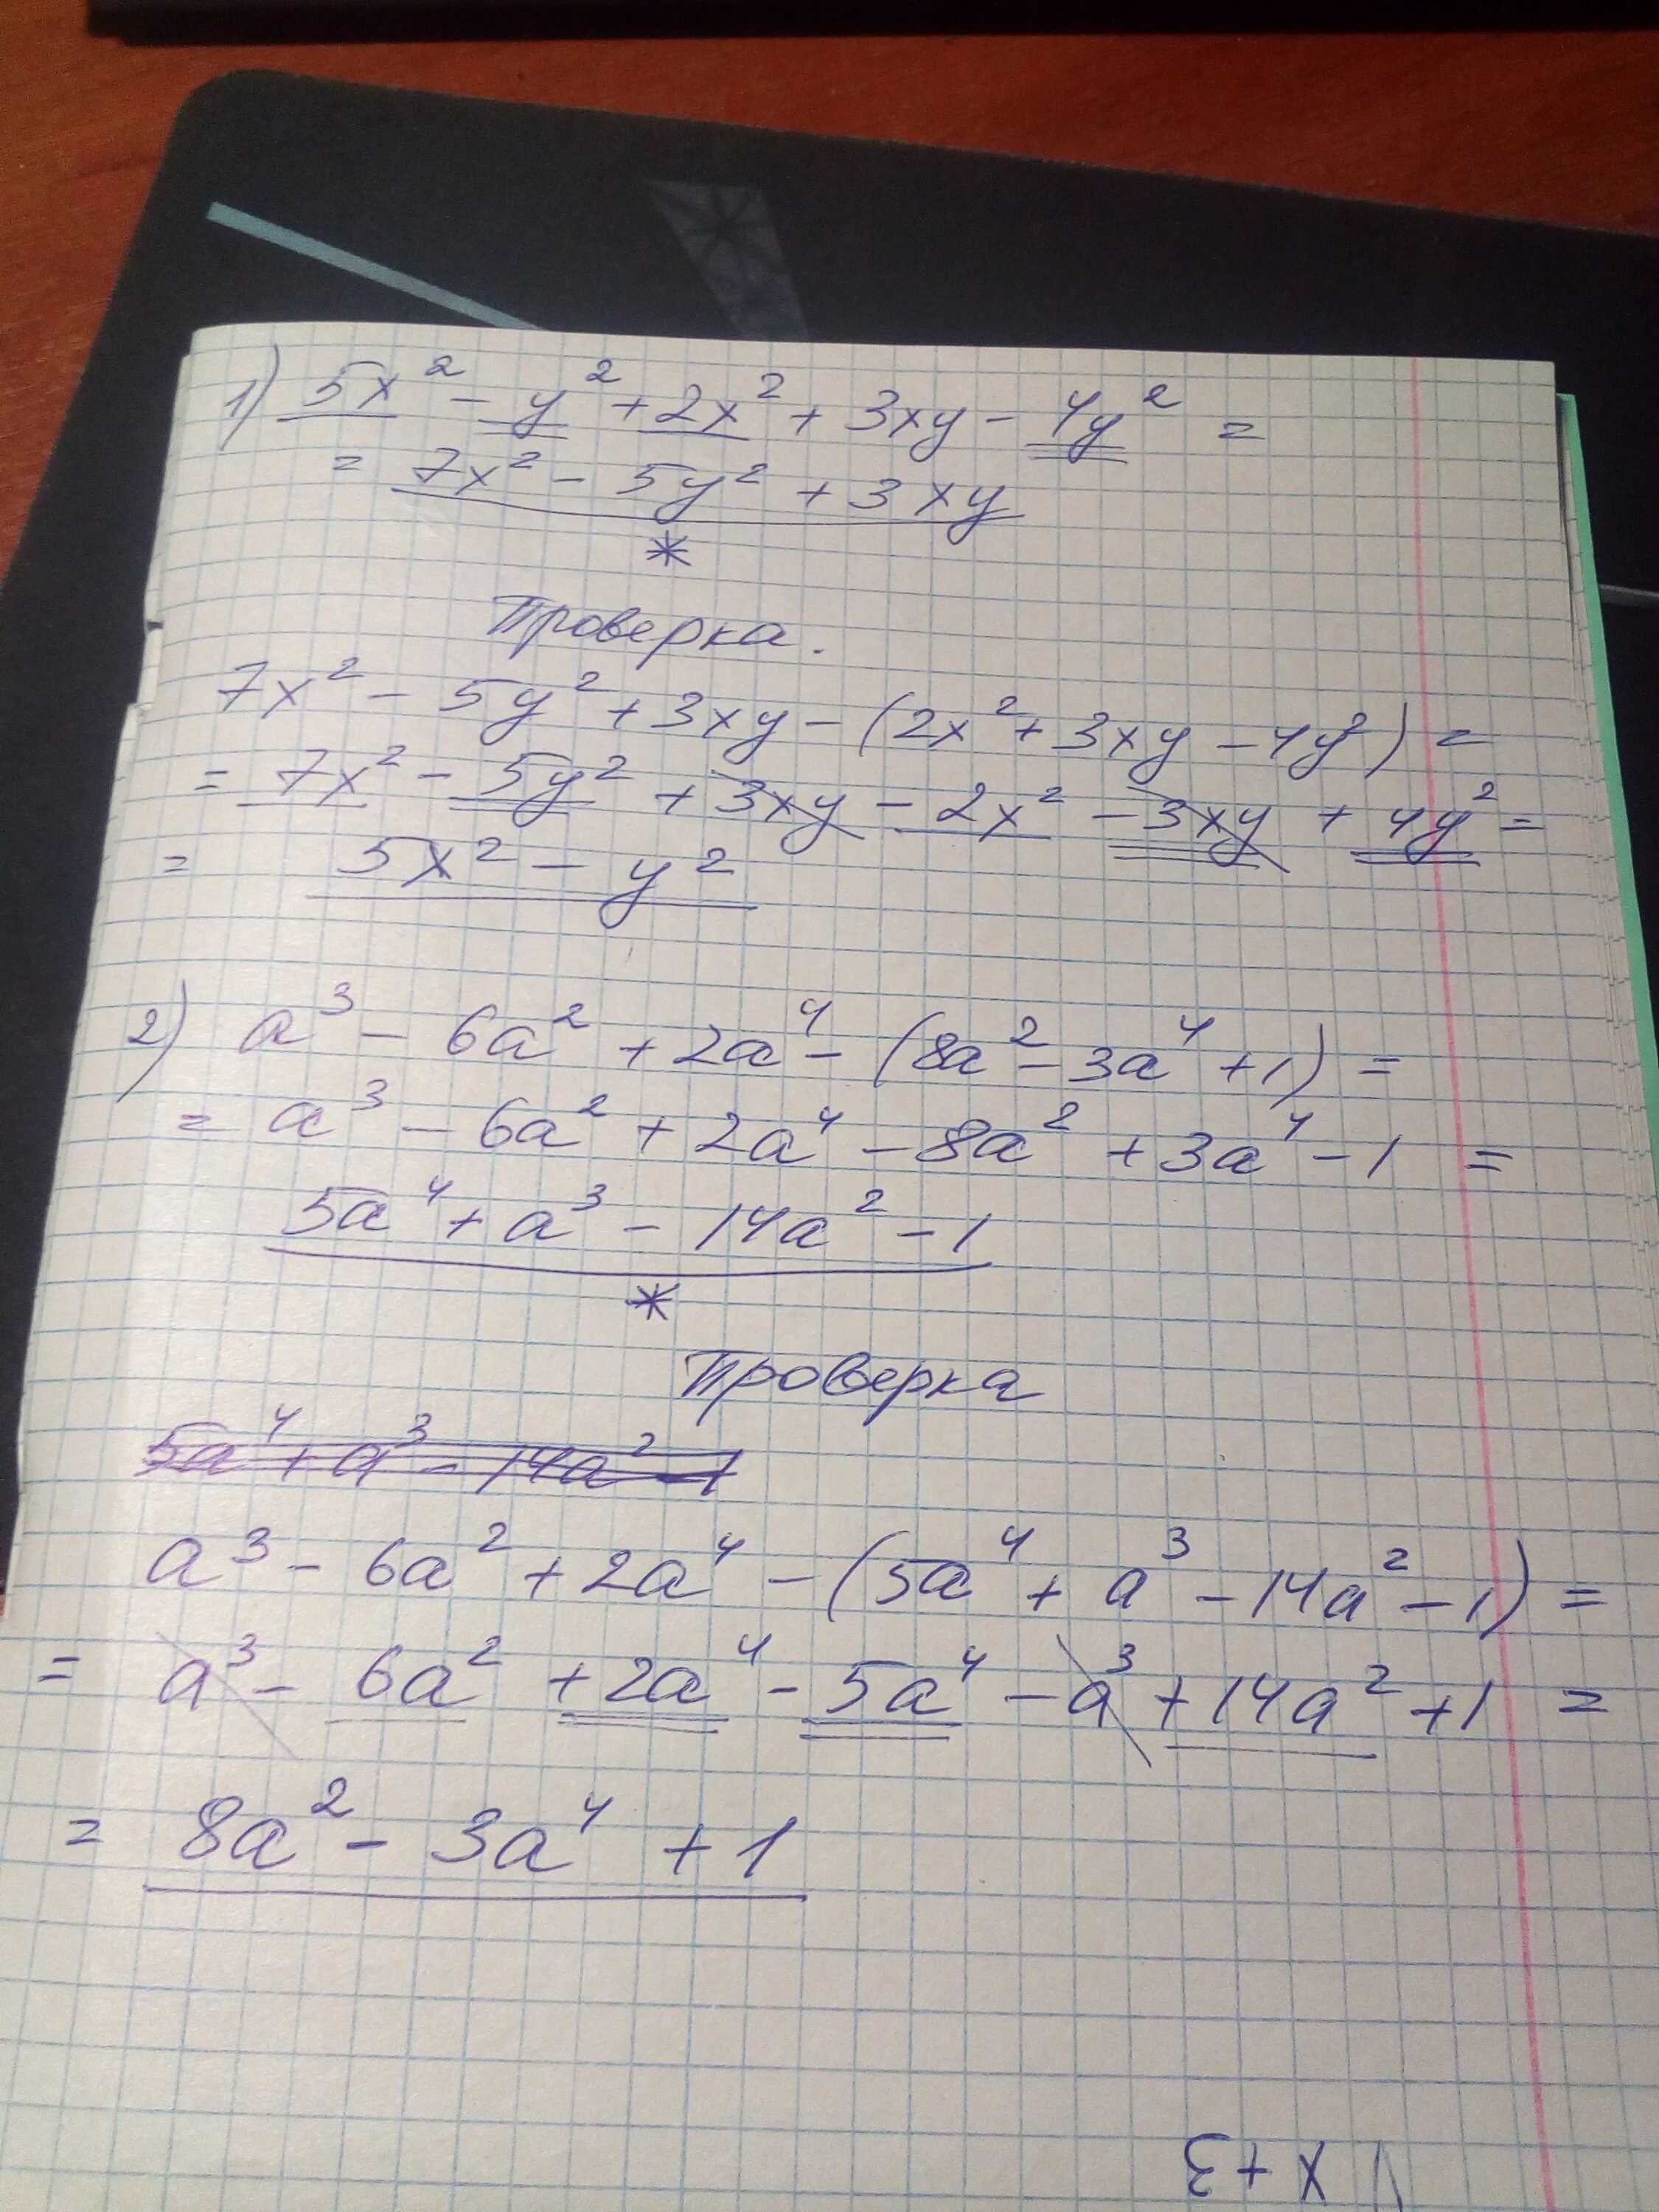 1) 5x² - y² + 2x² + 3xy - 4y² =
= 7x² - 5y² + 3xy
*
Проверка.
7x² - 5y² + 3xy - (2x² + 3xy - 4y²) =
= 7x² - 5y² + 3xy - 2x² - 3xy + 4y² =
= 5x² - y²
2) a³ - 6a² + 2a⁴ - (8a² - 3a⁴ + 1) =
= a³ - 6a² + 2a⁴ - 8a² + 3a⁴ - 1 =
5a⁴ + a³ - 14a² - 1
*
Проверка
5a⁴ + a³ - 14a² - 1
a³ - 6a² + 2a⁴ - (5a⁴ + a³ - 14a² - 1) =
= a³ - 6a² + 2a⁴ - 5a⁴ - a³ + 14a² + 1 =
= 8a² - 3a⁴ + 1
x + 3